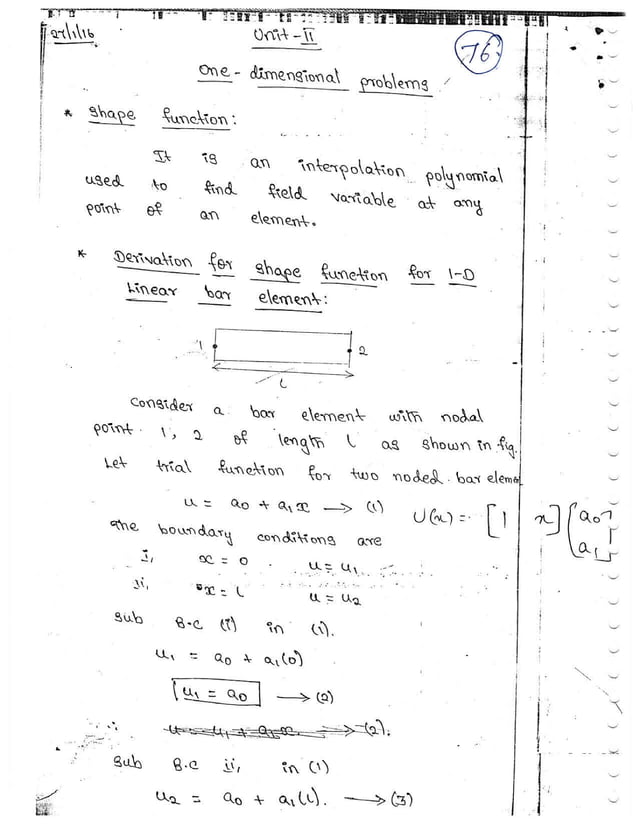 27/1/16
Unit-II
76
One-dimensional problems
* Shape function:
It is an interpolation polynomial
used to find field variable at any
point of an element.
* Derivation for shape function for 1-D
Linear bar element:
1 2
L
Consider a bar element with nodal
point 1, 2 of length L as shown in fig.
Let trial function for two noded bar eleme
u = a0 + a1x → (1) U(x) = [1 x] {a0
a1}
The boundary conditions are
i, x = 0 u = u1
ii, x = L u = u2
Sub B.C (i) in (1).
u1 = a0 + a1(0)
u1 = a0 → (2)
∴ u = u1 + a1x → (2).
Sub B.C ii, in (1)
u2 = a0 + a1(L). → (3)